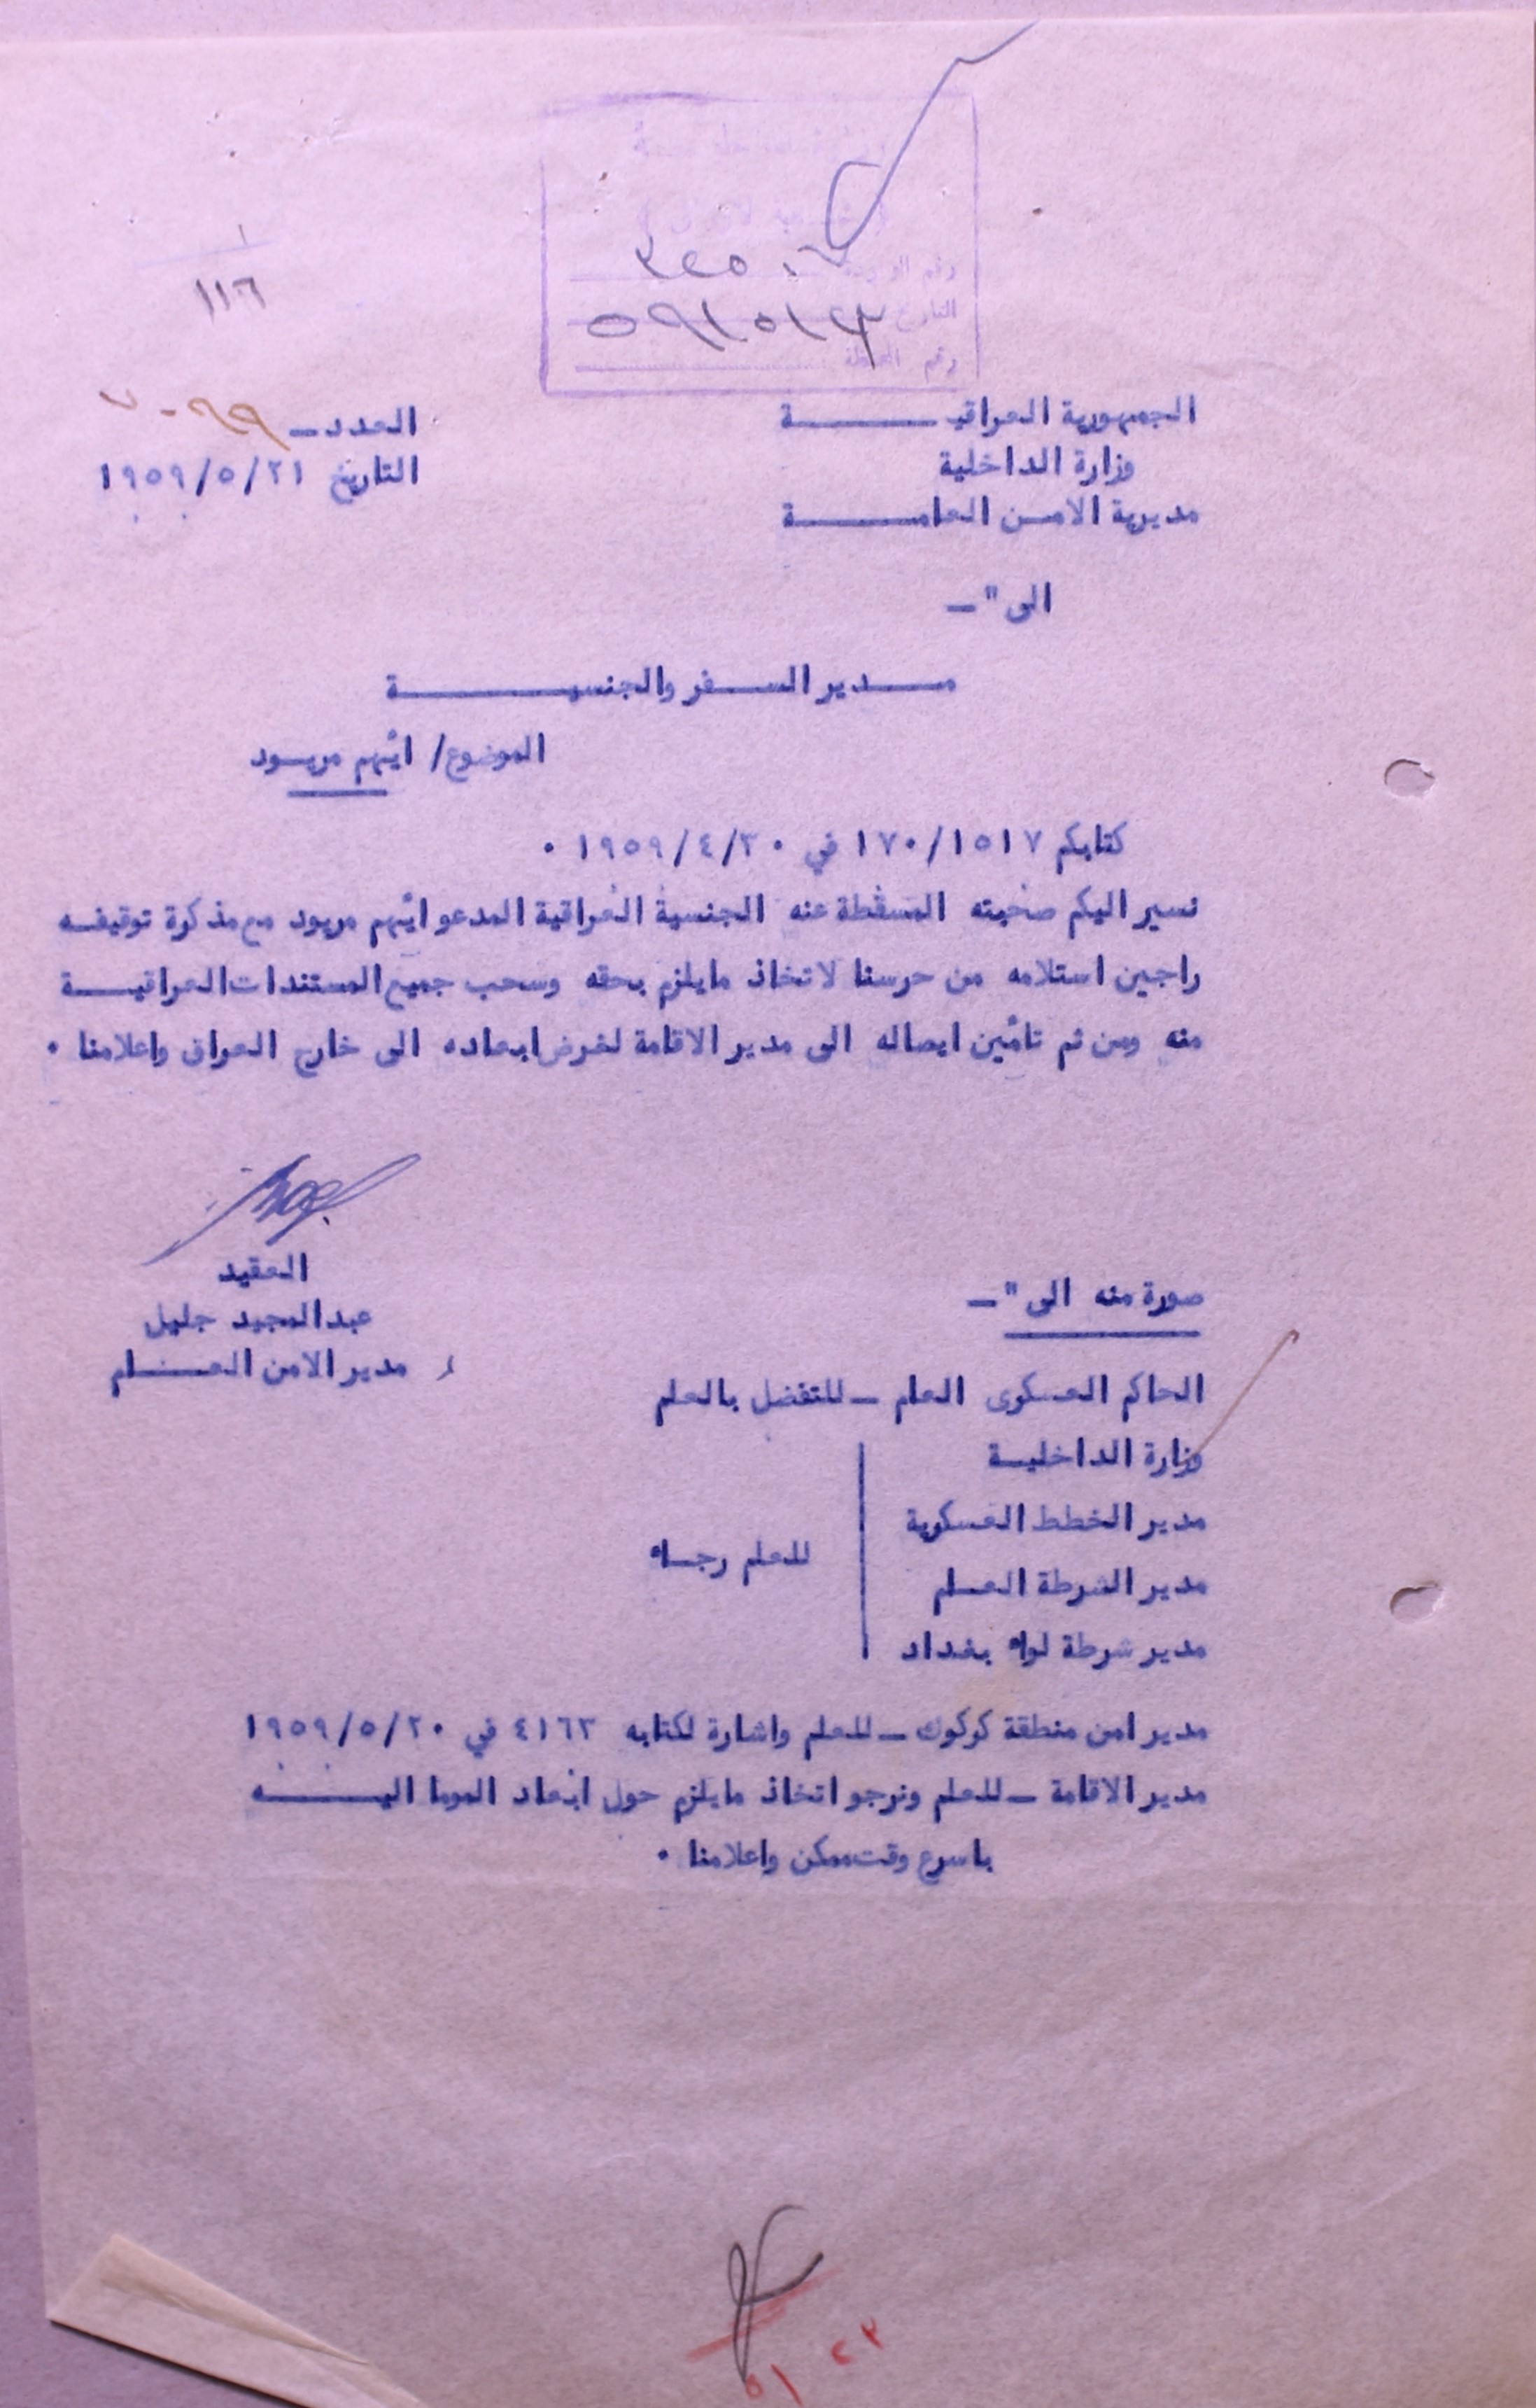 ١١٦
رقم الواردة
التاريخ
رقم المحفظة
الجمهورية العراقيــــــــة
العدد ــ
وزارة الداخلية
التاريخ ١٩٥٩/٥/٢١
مديرية الامـن العامـــــــة
الى "ــ
مـــدير الســـفر والجنسيـــــــــة
الموضوع/ ابٔهم مريـود
كتابكم ١٧٠/١٥١٧ في ١٩٥٩/٤/٣٠ ٠
نسير اليكم صحبته المسقطة عنه الجنسية العراقية المدعو ابٔهم مريود مع مذكرة توقيفـه
راجين استلامه من حرسنا لاتخاذ مايلزم بحقه وسحب جميع المستندات العراقيـــة
منه ومن ثم تأمين ايصاله الى مدير الاقامة لغرض ابعاده الى خارج العراق واعلامنا ٠
العقيد
عبدالمجيد جليل
مدير الامن العـــام
صورة منه الى "ــ
الحاكم العسكرى العام ــ للتفضل بالعلم
وزارة الداخليـة
مدير الخطط العسكرية
مدير الشرطة العـام
للعلم رجـاء
مدير شرطة لواء بغداد
مدير امن منطقة كركوك ــ للعلم واشارة لكتابه ٤١٦٣ في ١٩٥٩/٥/٢٠
مدير الاقامة ــ للعلم ونرجو اتخاذ مايلزم حول ابعاد الموما اليـــــه
باسرع وقت ممكن واعلامنا ٠